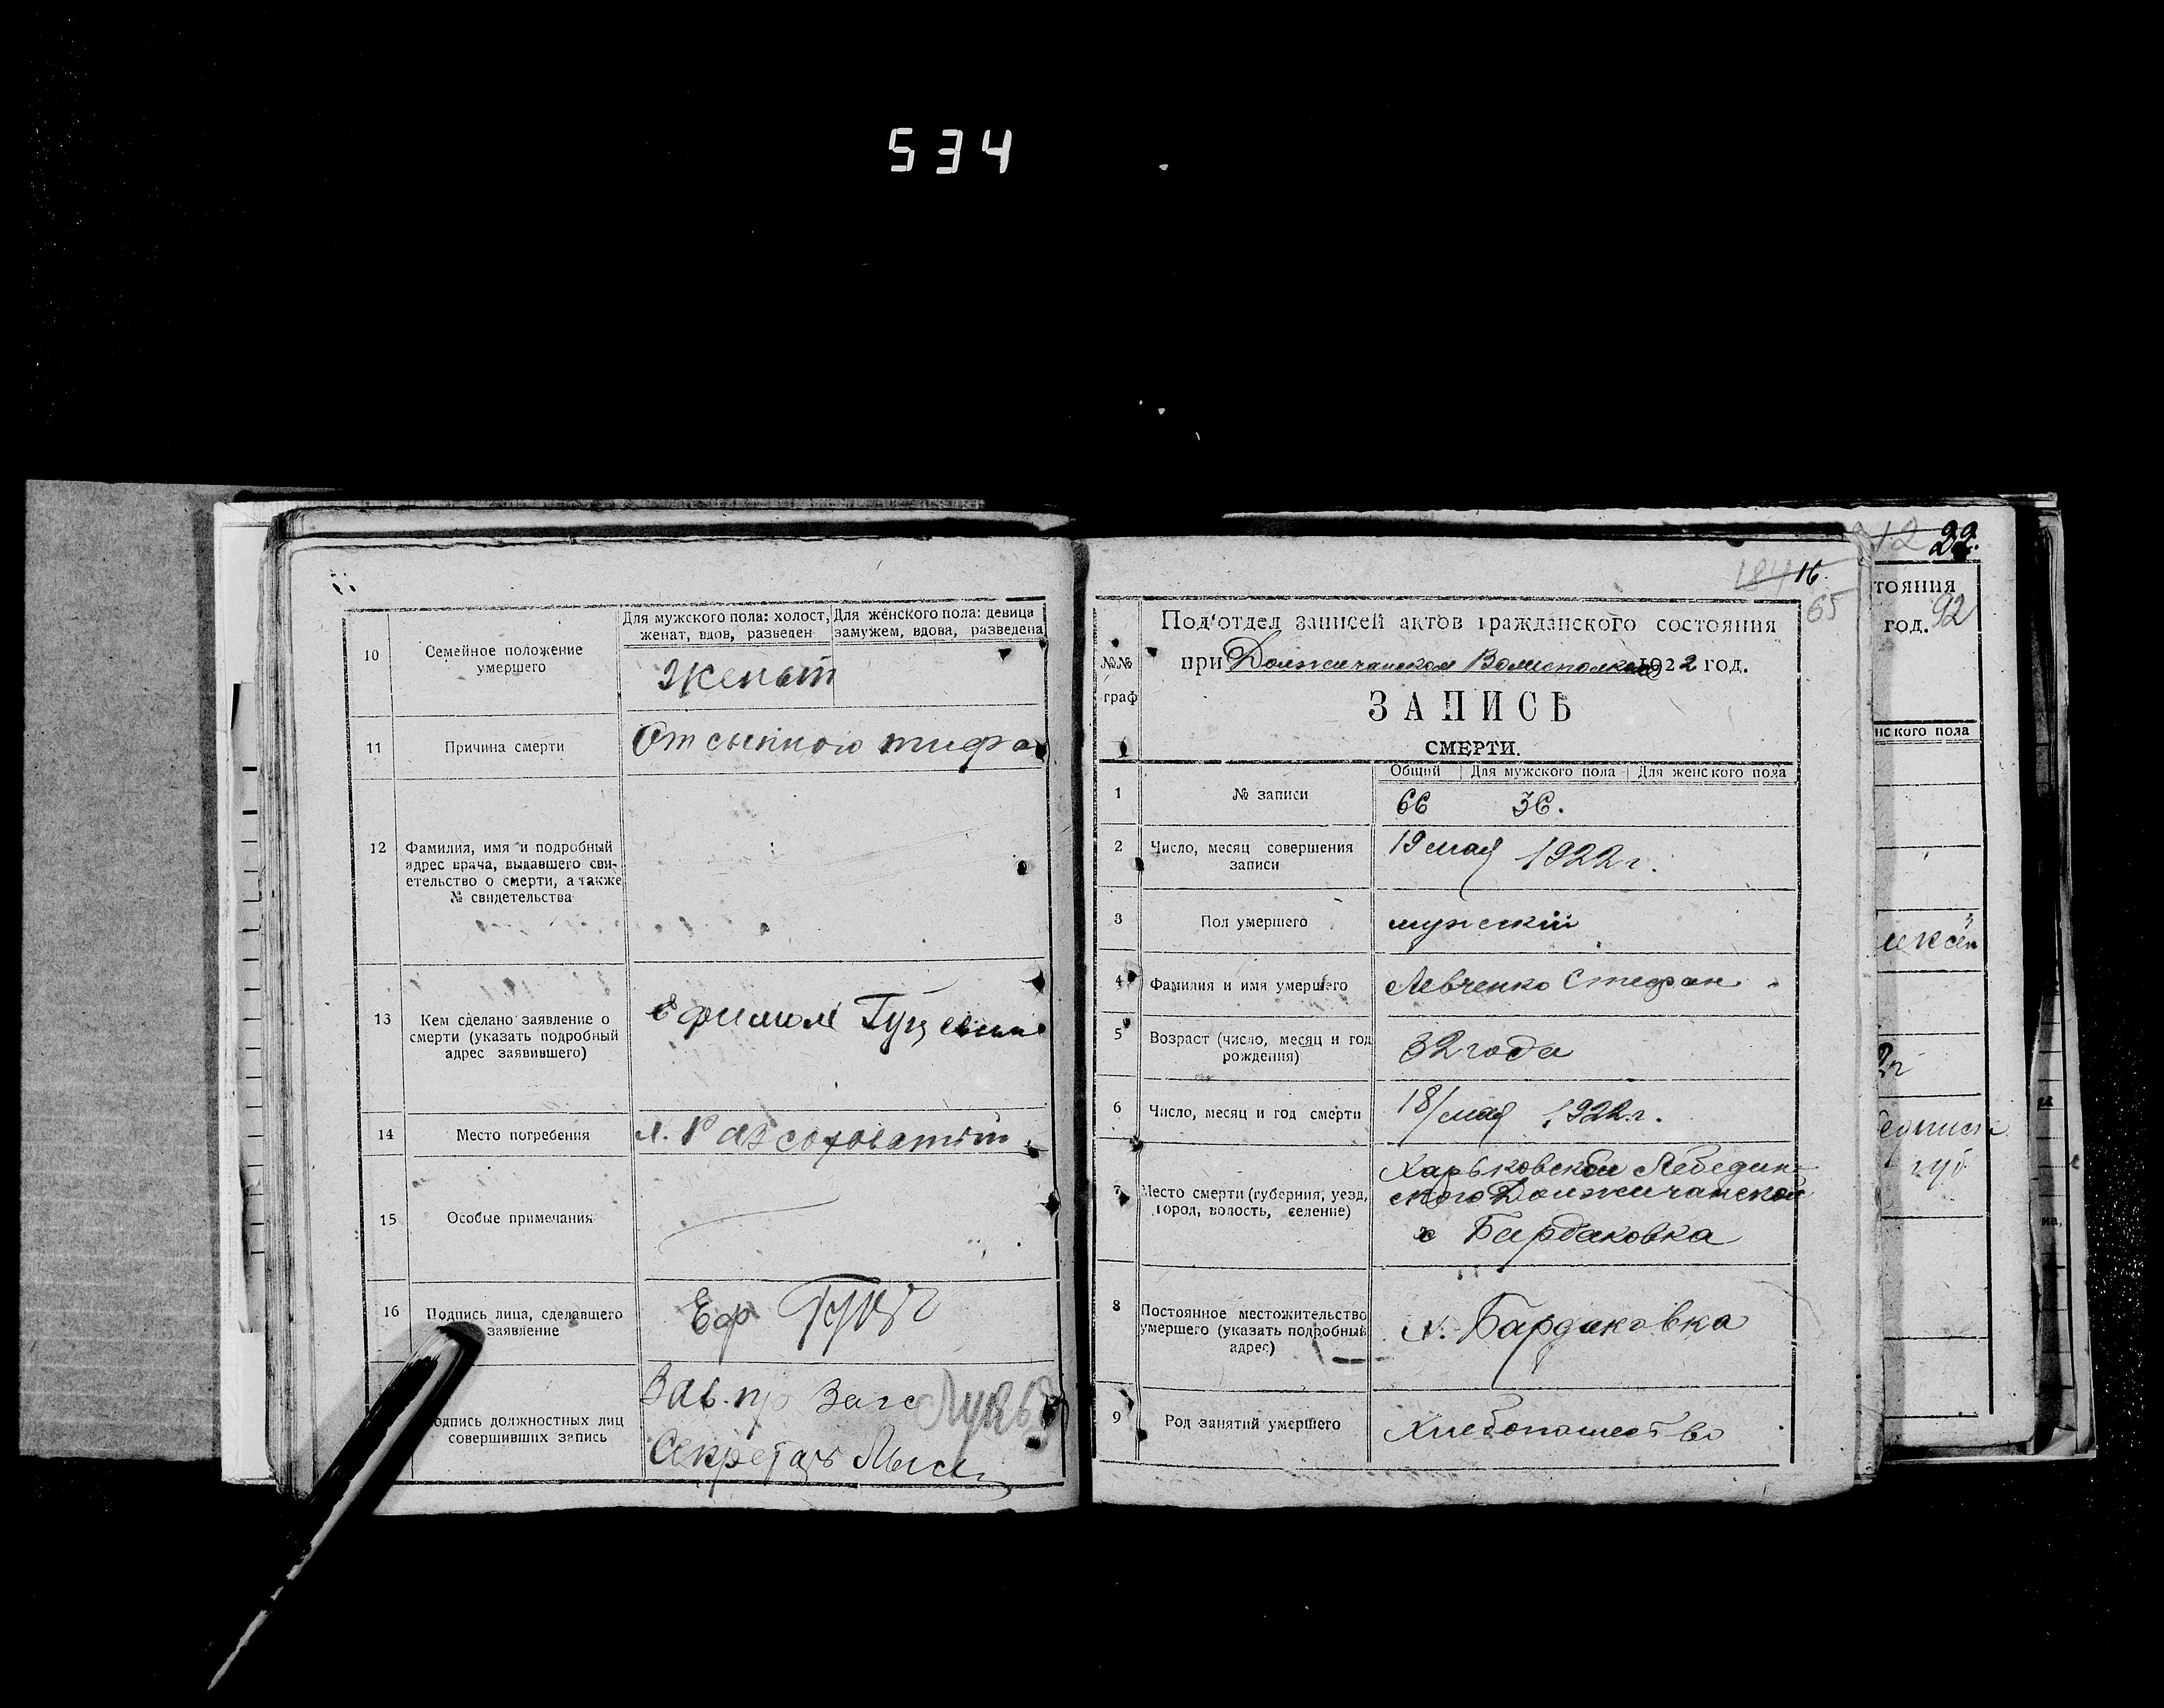 534
10
Семейное положение
умершего
Для мужского пола: холост,
женат, вдов, разведен
Для женского пола: девица
замужем, вдова, разведена
Женат
11
Причина смерти
От сыпного тифа
12
Фамилия, имя и подробный
адрес врача, выдавшего сви-
етельство о смерти, а также
№ свидетельства
13
Кем сделано заявление о
смерти (указать подробный
адрес заявившего)
Ефимом
14
Место погребения
15
Особые примечания
16
Подпись лица, сделавшего
заявление
Еф
одпись должностных лиц
совершивших запись
Зав. п/о Загс
Секретарь
184 16.
65
№№
граф
Под'отдел записей актов гражданского состояния
при Должичанском Волисполкоме 1922 год.
ЗАПИСЬ
СМЕРТИ.
Общий
Для мужского пола
Для женского пола
1
№ записи
66 36.
2
Число, месяц совершения
записи
19 мая 1922 г.
3
Пол умершего
мужский
4
Фамилия и имя умершего
Левченко Стефан
5
Возраст (число, месяц и год
рождения)
32 года
6
Число, месяц и год смерти
18/мая 1922 г.
7
Место смерти (губерния, уезд,
город, волость, селение)
Харьковской Лебедин-
ского Должичанской
х Бардаковка
8
Постоянное местожительство
умершего (указать подробный
адрес)
х. Бардаковка
9
Род занятий умершего
Хлебопашество
12 22.
тояния
год. 92
нского пола
губ